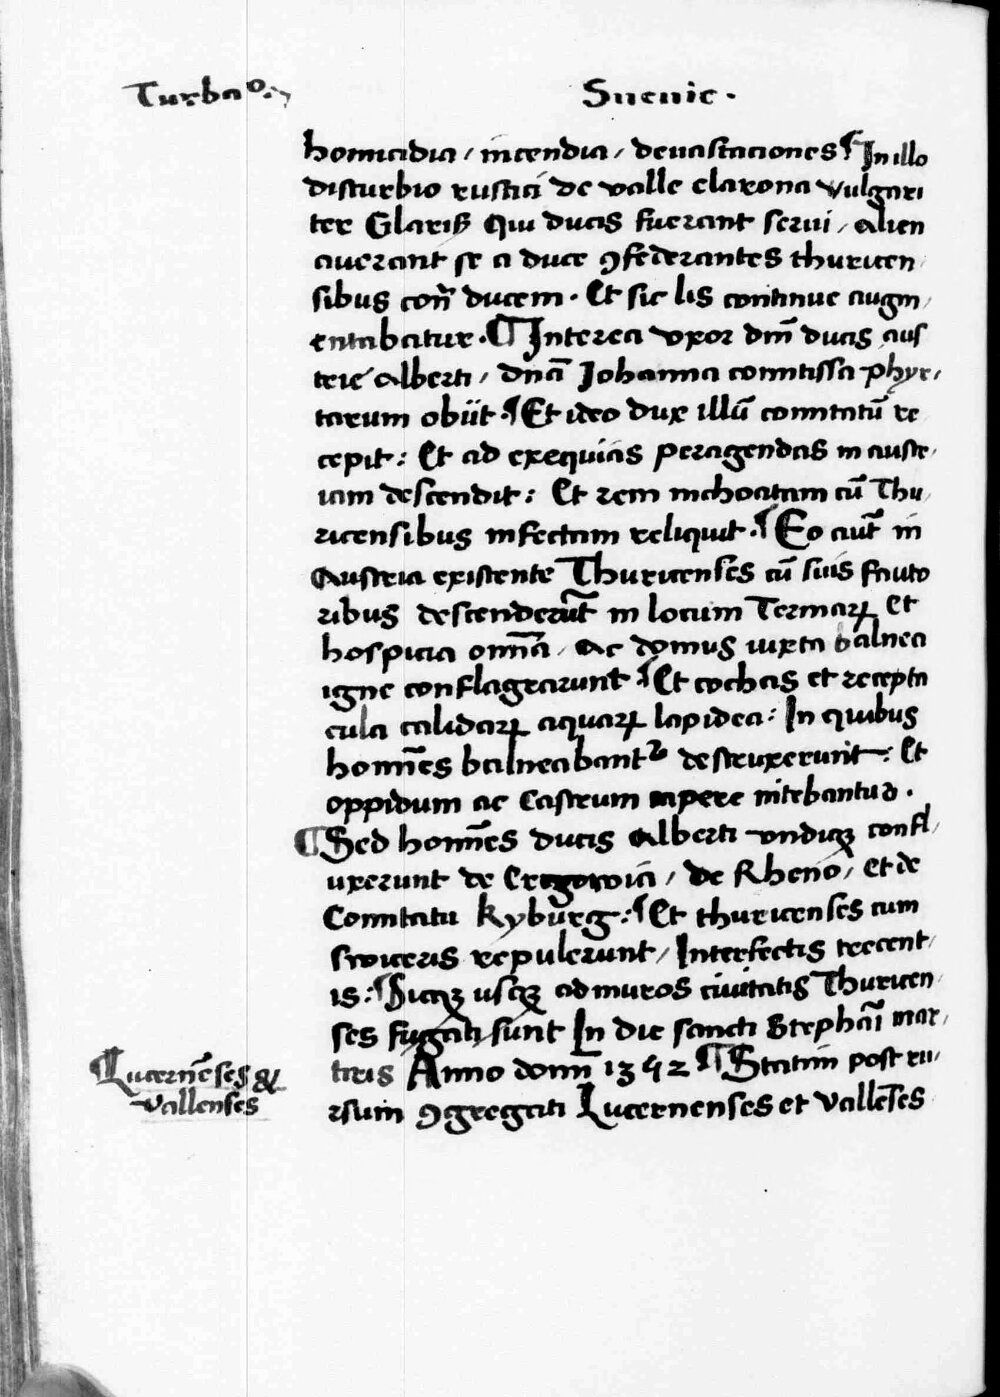 Turbaº.
Sueuie.
homicidia / incendia / deuastaciones ¶ In illo
disturbio rustici de valle clarona vulgari
ter Glariß Qui ducis fuerant serui / alien
auerant se a duce ꝯfederantes thuricen
sibus cont̄ ducem. Et sic lis continue augm
entabatur. ¶ Interea vxor dm̄ ducis aus
trie Alberti / dnā Johanna comitissa phyr
tarum obiit. ¶ Et ideo dux illū comitatū re
cepit: Et ad exequias peragendas in austr
iam descendit: Et rem inchoatam cū Thu
ricensibus infectam reliquit. ¶ Eo aut̄ in
Austria existente Thuricenses cū suis fauto
ribus descenderūt in locum Termaꝝ Et
hospicia om̄ia / Ac domus iuxta balnea
igne conflagrarunt ¶ Et cochas et recepta
cula calidaꝝ aquaꝝ lapidea: In quibus
homīes balneabant² destruxerunt: Et
oppidum ac Castrum capere nitebantur.
¶ Sed homīes ducis Alberti vndiqꝫ confl
uxerunt de Ergowia / de Rheno / Et de
Comitatu Kyburg: ¶ Et thuricenses cum
switeris repulerunt / Interfectis trecent
is: ¶ Sicqꝫ usqꝫ ad muros ciuitatis Thuricen
ses fugati sunt In die sancti Stephāi mar
tiris Anno domī 1352 ¶ Statim post cu
rsum ꝯgregati Lucernenses et Vallēses
Lucernēses &
vallenses